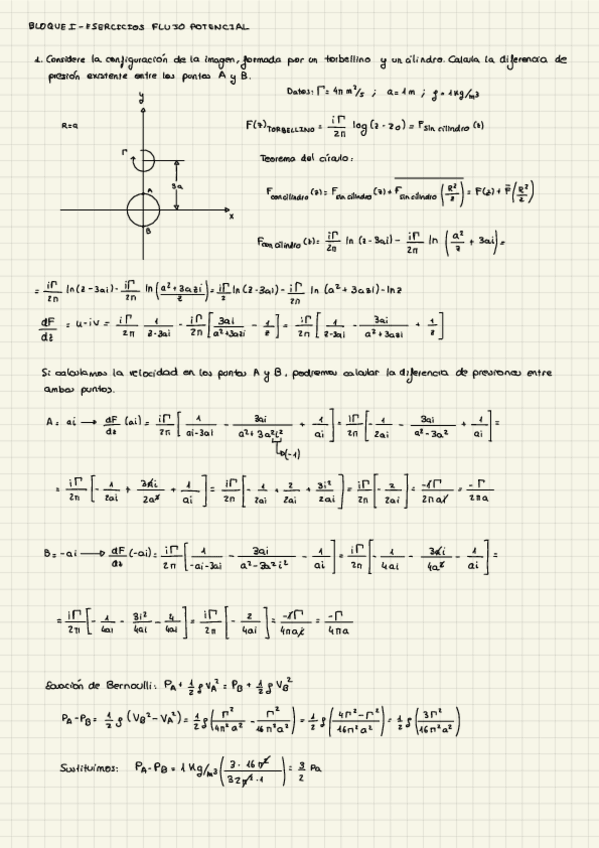 BLOQUE I - EJERCICIOS FLUJO POTENCIAL
1. Considere la configuración de la imagen, formada por un torbellino y un cilindro. Calcula la diferencia de
presión existente entre los puntos A y B.
Datos: Γ = 4π m²/s ; a = 1 m ; ρ = 1 kg/m³
R=a
y
Γ
3a
A
B
x
F(z) TORBELLINO = iΓ/2π log (z - z0) = F sin cilindro (z)
Teorema del círculo:
F con cilindro (z) = F sin cilindro (z) + F sin cilindro (R²/z) = F(z) + F̄(R²/z)
F con cilindro (z) = iΓ/2π ln (z - 3ai) - iΓ/2π ln (a²/z + 3ai) =
= iΓ/2π ln(z - 3ai) - iΓ/2π ln (a² + 3azi / z) = iΓ/2 ln (z - 3ai) - iΓ/2π ln (a² + 3azi) - ln z
dF/dz = u - iv = iΓ/2π 1/z-3ai - iΓ/2π [3ai/a²+3azi - 1/z] = iΓ/2π [1/z-3ai - 3ai/a²+3azi + 1/z]
Si calculamos la velocidad en los puntos A y B, podremos calcular la diferencia de presiones entre
ambos puntos.
A = ai → dF/dz (ai) = iΓ/2π [1/ai-3ai - 3ai/a²+3a²i² + 1/ai] = iΓ/2π [-1/2ai - 3ai/a²-3a² + 1/ai] =
(-1)
= iΓ/2π [-1/2ai + 3ai/2a² + 1/ai] = iΓ/2π [-1/2ai + 2/2ai + 3i²/2ai] = iΓ/2π [-2/2ai] = -iΓ/2πai = -Γ/2πa
B = -ai → dF/dz (-ai) = iΓ/2π [1/-ai-3ai - 3ai/a²-3a²i² - 1/ai] = iΓ/2π [-1/4ai - 3ai/4a² - 1/ai] =
= iΓ/2π [-1/4ai - 3i²/4ai - 4/4ai] = iΓ/2π [-2/4ai] = -iΓ/4πai = -Γ/4πa
Ecuación de Bernoulli: PA + 1/2 ρ VA² = PB + 1/2 ρ VB²
PA - PB = 1/2 ρ (VB² - VA²) = 1/2 ρ (Γ²/4π²a² - Γ²/16π²a²) = 1/2 ρ (4Γ² - Γ²/16π²a²) = 1/2 ρ (3Γ²/16π²a²)
Sustituimos: PA - PB = 1 kg/m³ (3 · 16 π²/32 π² · 1) = 3/2 Pa